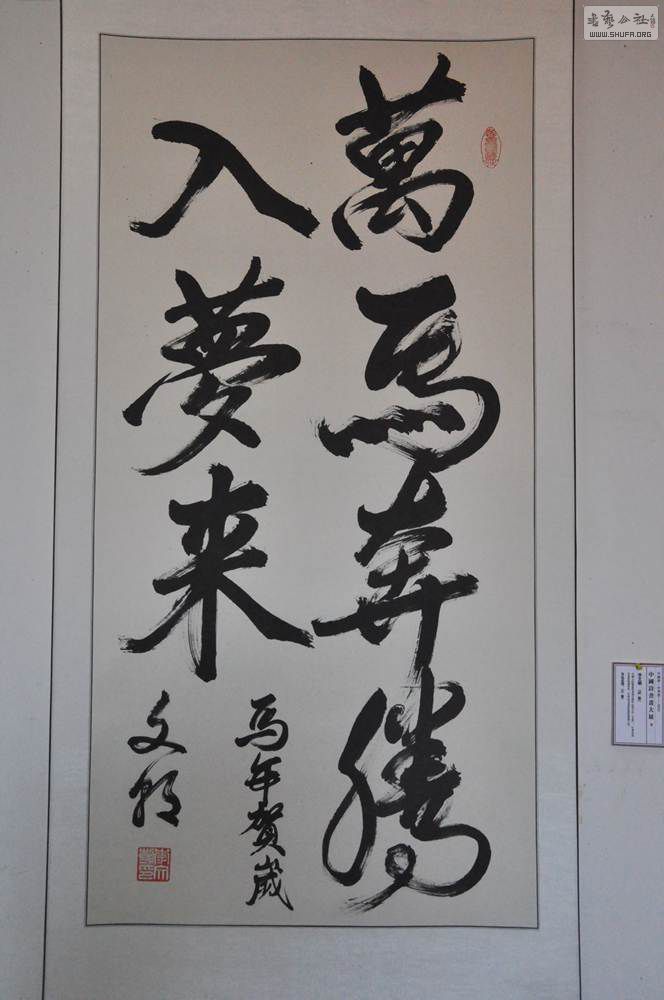 萬馬奔騰
入夢来
馬年賀歲
文朝
书艺公社
WWW.SHUFA.ORG
中國詩書畫大展